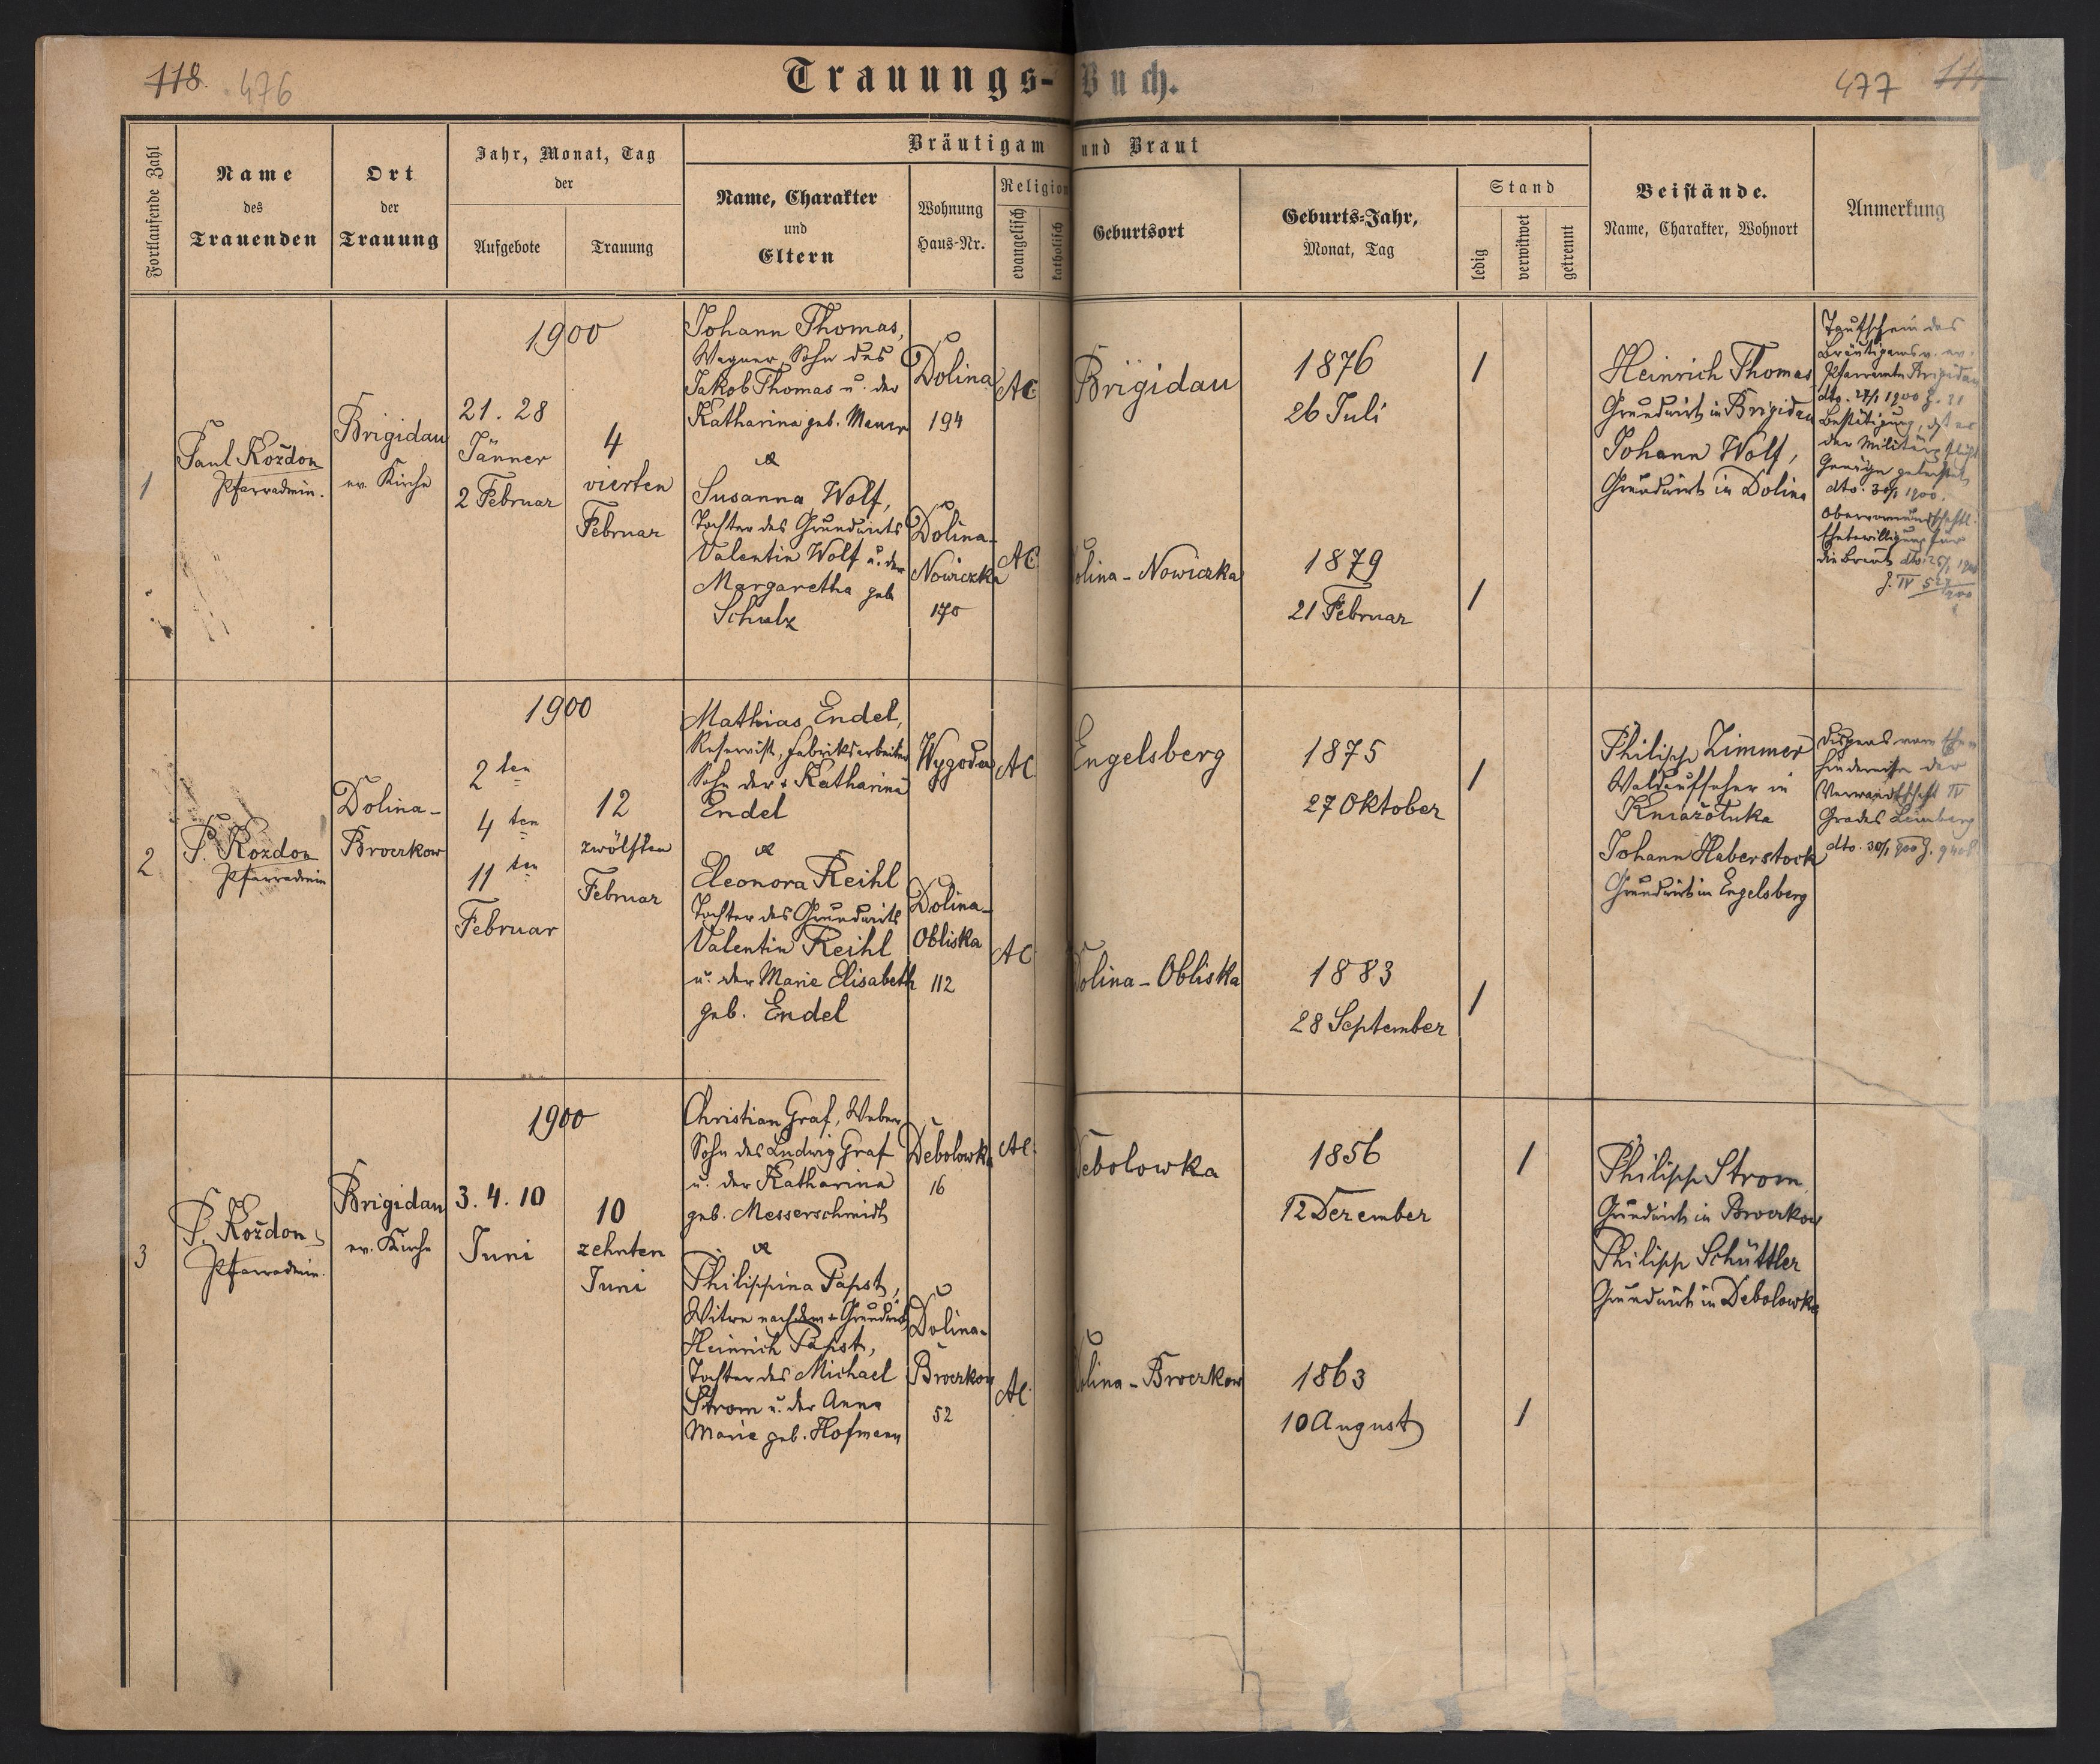 118. 476
Trauungs-Buch.
477 114
Fortlaufende Zahl
Name
des
Trauenden
Ort
der
Trauung
Jahr, Monat, Tag
der
Aufgebote
Trauung
Bräutigam und Braut
Name, Charakter
und
Eltern
Wohnung
Haus-Nr.
Religion
evangelisch
katholisch
Geburtsort
Geburts-Jahr,
Monat, Tag
Stand
ledig
verwitwet
getrennt
Beistände.
Name, Charakter, Wohnort
Anmerkung
1
Paul Kożdon
Pfarradmin.
Brigidau
ev. Kirche
1900
21. 28
Jänner
2 Februar
4
vierten
Februar
Johann Thomas,
Wagner, Sohn des
Jakob Thomas u. der
Katharina geb. Mauer
&
Susanna Wolf,
Tochter des Grundwirts
Valentin Wolf u. der
Margaretha geb.
Schulz
Dolina
194
AC
Dolina-
Nowiczka
170
AC
Brigidau
Dolina-Nowiczka
1876
26 Juli
1879
21 Februar
1
1
Heinrich Thomas
Grundwirt in Brigidau
Johann Wolf,
Grundwirt in Dolina
Taufschein des
Bräutigams v. ev.
Pfarramte Brigidau
dto. 27/1 1900 Z. 21
Bestätigung, dß er
der Militärpflicht
Genüge geleistet
dto. 30/1 1900.
Obervormundschaftl.
Ehebewilligung für
die Braut dto. 25/1 1900
Z. IV
2
P. Kozdon
Pfarradmin
Dolina-
Broczkow
1900
2 ten
4 ten
11 ten
Februar
12
zwölften
Februar
Mathias Endel,
Reservist, Fabriksarbeiter
Sohn der + Katharina
Endel
&
Eleonora Reihl
Tochter des Grundwirts
Valentin Reihl
u. der Marie Elisabeth
geb. Endel
Wygoda
AC
Dolina-
Obliska
112
AC
Engelsberg
Dolina-Obliska
1875
27 Oktober
1883
28 September
1
1
Philipp Zimmer
Waldaufseher in
Kniażołuka
Johann Haberstock
Grundwirt in Engelsberg
Dispens vom Ehe
hindernisse der
Verwandtschaft IV
Grades Lemberg
dto. 30/1 900 Z.
3
P. Kożdon
Pfarradmin.
Brigidau
ev. Kirche
1900
3. 4. 10
Juni
10
zehnten
Juni
Christian Graf, Weber
Sohn des Ludwig Graf
u. der Katharina
geb. Messerschmidt
&
Philippina Papst,
Witwe nach dem + Grundwirt
Heinrich Papst,
Tochter des Michael
Strom u. der Anna
Marie geb. Hofmann
Debolowka
16
AC
Dolina-
Broczkow
52
AC
Debolowka
Dolina-Broczkow
1856
12 Dezember
1863
10 August
1
1
Philipp Strom,
Grundwirt in Broczkow
Philipp Schüttler
Grundwirt in Debolowka